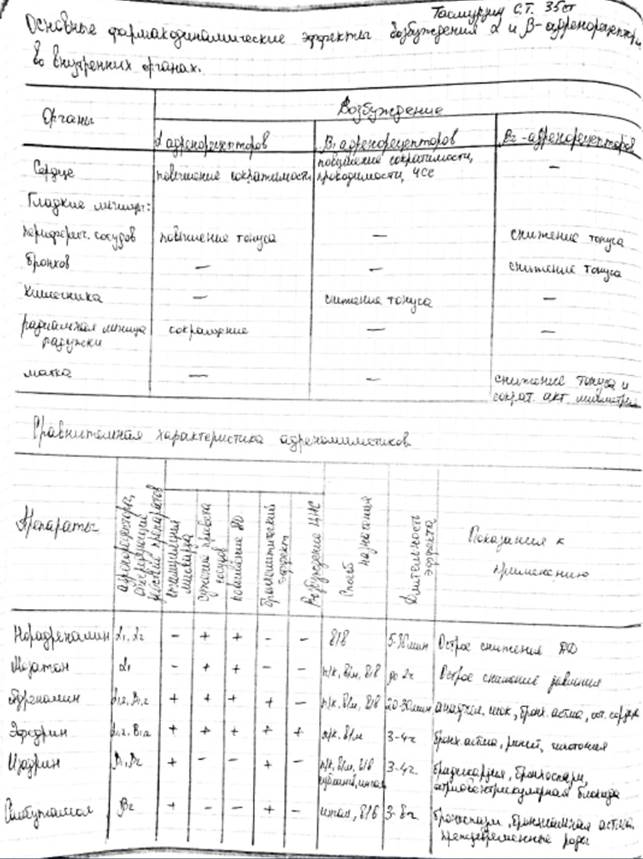 С.Т. 35ст
Основные фармакодинамические эффекты возбуждения α и β-адренорецептор
во внутренних органах.
Органы
Возбуждение
α адренорецепторов
B₁ адренорецепторов
B₂ -адренорецепторов
Сердце
повышение сократимости
повышение сократимости,
проводимости, ЧСС
—
Гладкие мышцы:
перифирич. сосудов
повышение тонуса
—
снижение тонуса
бронхов
—
—
снижение тонуса
кишечника
—
снижение тонуса
—
радиальная мышца
радужки
сокращение
—
—
матка
—
—
снижение тонуса и
сократ. акт. миометрия
Сравнительная характеристика адреномиметиков
Препараты
адренорецепторы,
стимуляция
миокарда
сужение
сосудов
повышение АД
бронхолитический
эффект
Возбуждение ЦНС
Способ
назначения
Длительность
эффекта
Показания к
применению
Норадреналин α₁, α₂ - + + - - в/в Острое снижения АД
Мезатон α₁ - + + - - п/к, в/м, в/в до 2ч Острое снижение давления
Адреналин α₁,₂, B₁,₂ + + + + - п/к, в/м, в/в 20-30мин анафил. шок, бронх. астма, ост. сердца
Эфедрин α₁,₂, B₁,₂ + + + + + п/к, в/м 3-4ч бронх. астма, ринит, гипотония
Изадрин B₁, B₂ + - - + - п/к, в/м, в/в 3-4ч. брадикардия, бронхоспазм,
атриовентрикулярная блокада
Сальбутамол B₂ + - - + - ингал, в/в 3-8ч бронхоспазм, бронхиальная астма
преждевременные роды